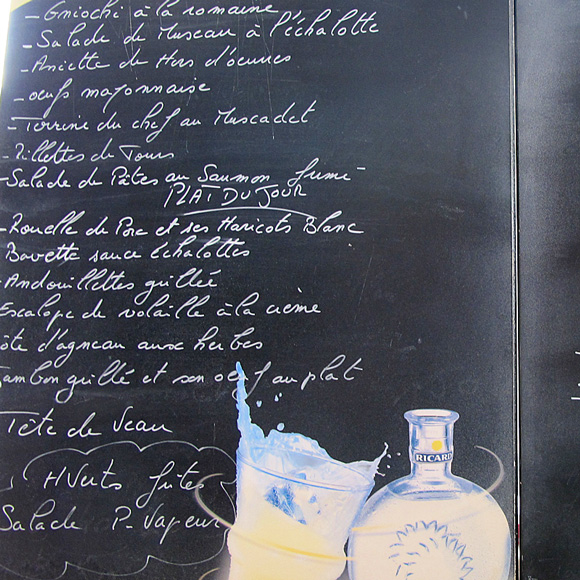 - Gniochi à la romaine
- Salade de Museau à l'échalotte
- Assiette de Hors d'oeuvres
- oeufs mayonnaise
- Terrine du chef au Muscadet
- Rillettes de Tours
- Salade de Pâtes au Saumon fumé
PLAT DU JOUR
- Rouelle de Porc et ses Haricots Blanc
Bavette sauce échalottes
- Andouillettes grillée
Escalope de volaille à la crème
ôte d'agneau aux herbes
Jambon grillé et son oeuf au plat
Tête de Veau
HVerts frites
Salade P-Vapeur
RICARD